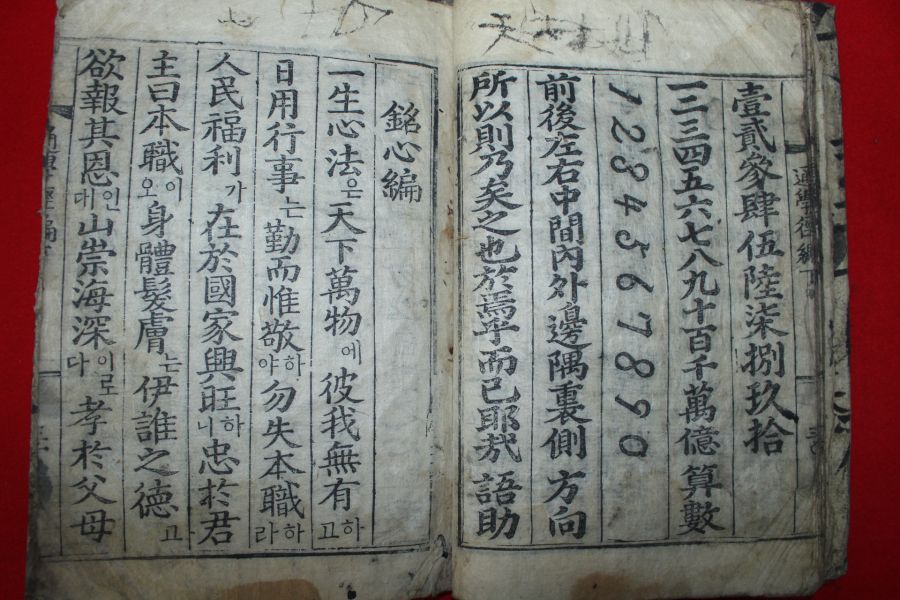 壹貳參肆伍陸柒捌玖拾
一二三四五六七八九十百千萬億 算數
1 2 3 4 5 6 7 8 9 0
前後左右中間內外邊隅重裏側 方向
所以則乃矣之也於焉乎而已耶哉 語助
銘心編
一生心法은天下萬物에彼我無有하고
日用行事는勤而惟敬하야勿失本職하라
人民福利가在於國家興旺하니忠於君
主曰本職이오身體髮膚는伊誰之德고
欲報其恩인대山崇海深이로다孝於父母